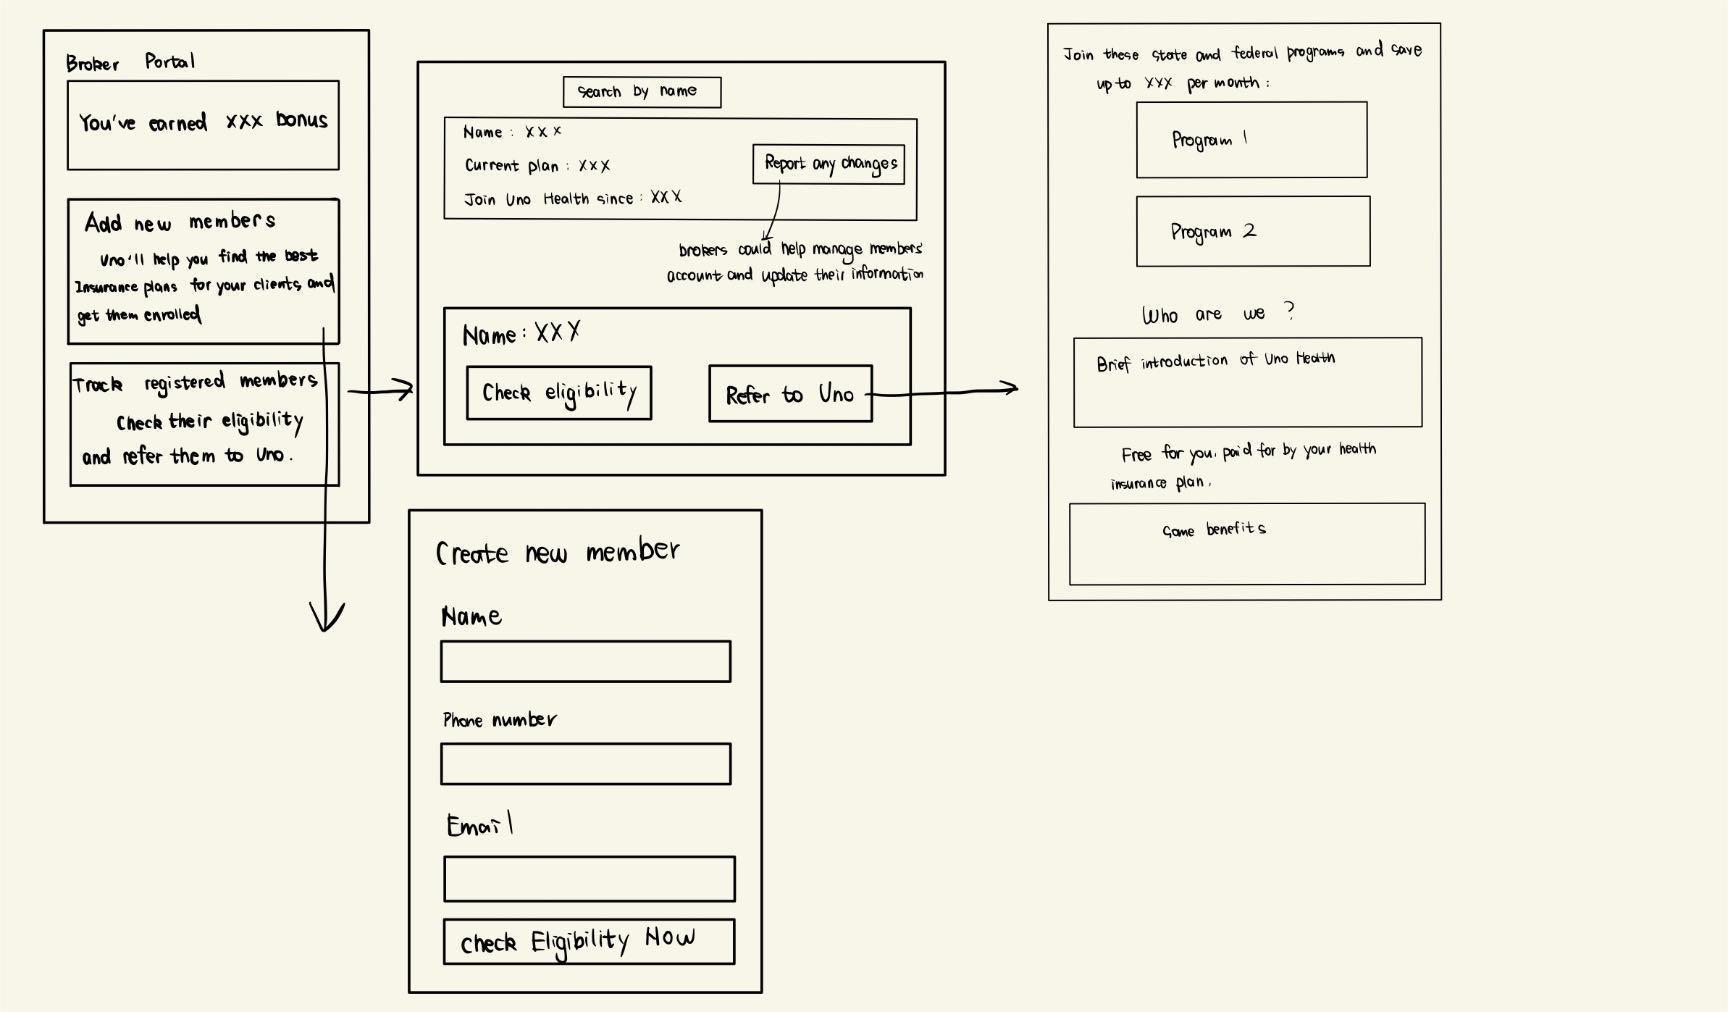 Broker Portal
You've earned xxx bonus
Add new members
Uno'll help you find the best
Insurance plans for your clients and
get them enrolled
Track registered members
Check their eligibility
and refer them to Uno.
Search by name
Name : XXX
Current plan : XXX
Join Uno Health since : XXX
Report any changes
brokers could help manage members'
account and update their information
Name : XXX
Check eligibility
Refer to Uno
Create new member
Name
Phone number
Email
Check Eligibility Now
Join these state and federal programs and save
up to XXX per month :
Program 1
Program 2
Who are we ?
Brief introduction of Uno Health
Free for you, paid for by your health
insurance plan.
Some benefits